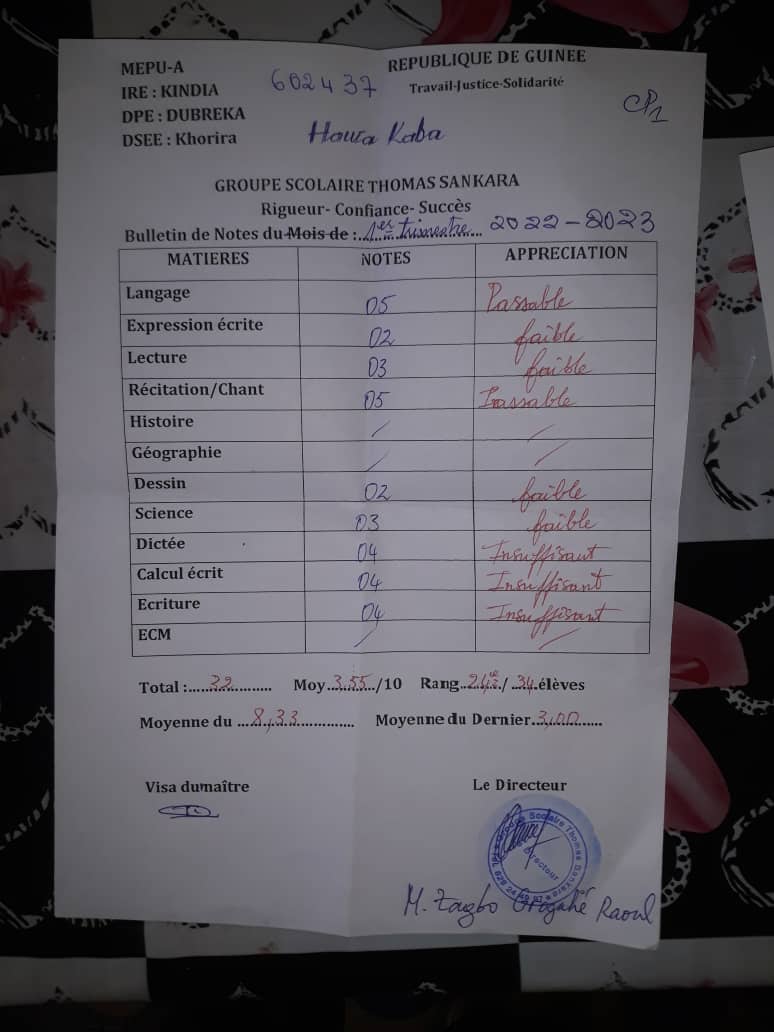 MEPU-A
REPUBLIQUE DE GUINEE
IRE : KINDIA
602437
Travail-Justice-Solidarité
DPE : DUBREKA
CP1
DSEE : Khorira
Hawa Kaba
GROUPE SCOLAIRE THOMAS SANKARA
Rigueur- Confiance- Succès
Bulletin de Notes du Mois de : 1er trimestre 2022-2023
MATIERES NOTES APPRECIATION
Langage 05 Passable
Expression écrite 02 faible
Lecture 03 faible
Récitation/Chant 05 Passable
Histoire / /
Géographie / /
Dessin 02 faible
Science 03 faible
Dictée 04 Insuffisant
Calcul écrit 04 Insuffisant
Ecriture 04 Insuffisant
ECM / /
Total :......32...... Moy.3.55./10 Rang..24è./.34.élèves
Moyenne du ...8,33............ Moyenne du Dernier.3,00.........
Visa dumaître
Le Directeur
Groupe Scolaire Thomas Sankara
Le Directeur
M. Zagbo Grogahé Raoul